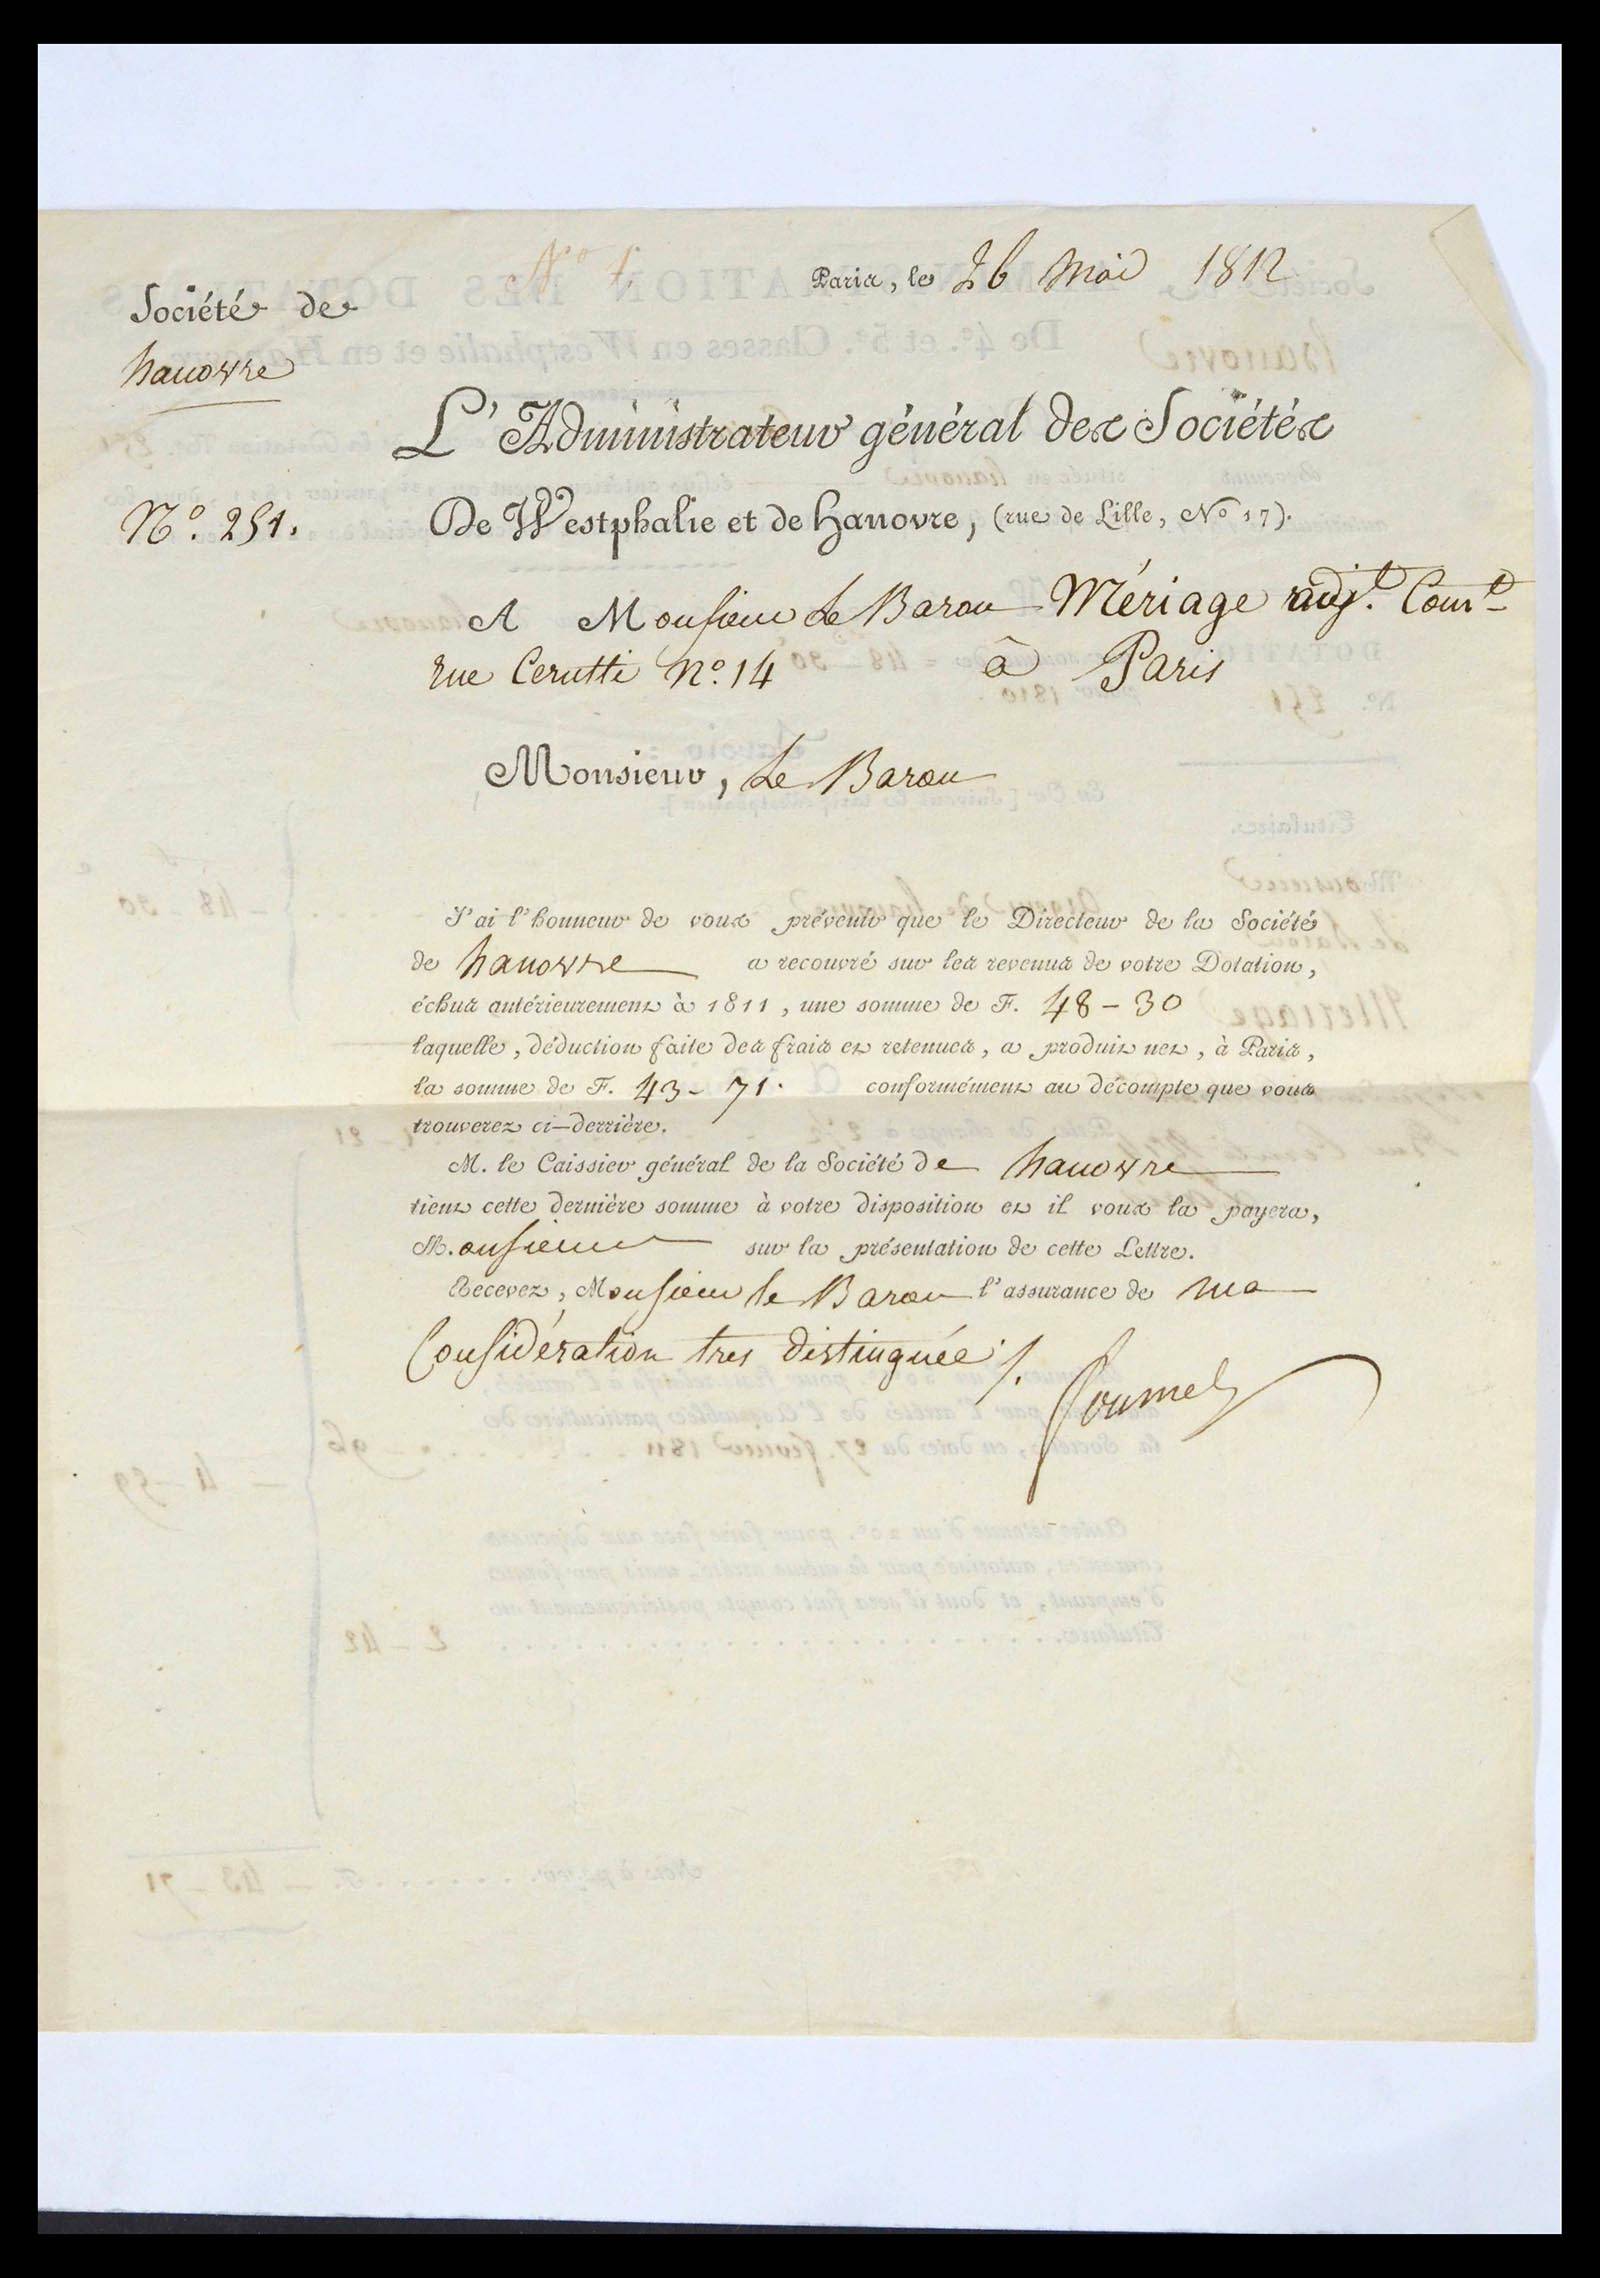 N.º 1.
Paris, le 26 Mai 1812
Société de
hanovre
L'Administrateur général des Sociétés
Nº. 251.
De Westphalie et de Hanovre, (rue de Lille, Nº 17).
A Monsieur Le Baron Mériage adj.t Com.t
rue Cerutti Nº. 14 à Paris
Monsieur, Le Baron
J'ai l'honneur de vous prévenir que le Directeur de la Société
de hanovre a recouvré sur les revenus de votre Dotation,
échus antérieurement à 1811, une somme de F. 48-30
laquelle, déduction faite des frais et retenues, a produit net, à Paris,
la somme de F. 43-71. conformément au décompte que vous
trouverez ci-derrière.
M. le Caissier général de la Société de hanovre
tient cette dernière somme à votre disposition et il vous la payera,
M.onsieur sur la présentation de cette Lettre.
Recevez, Monsieur le Baron l'assurance de ma
Considération tres distinguée ./.